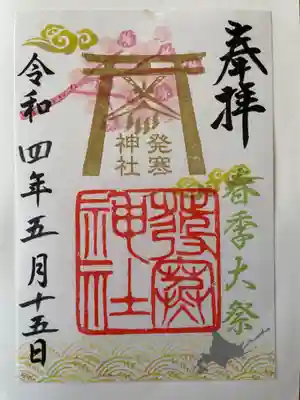 奉拝
発寒
神社
春季大祭
發寒
神社
令和四年五月十五日